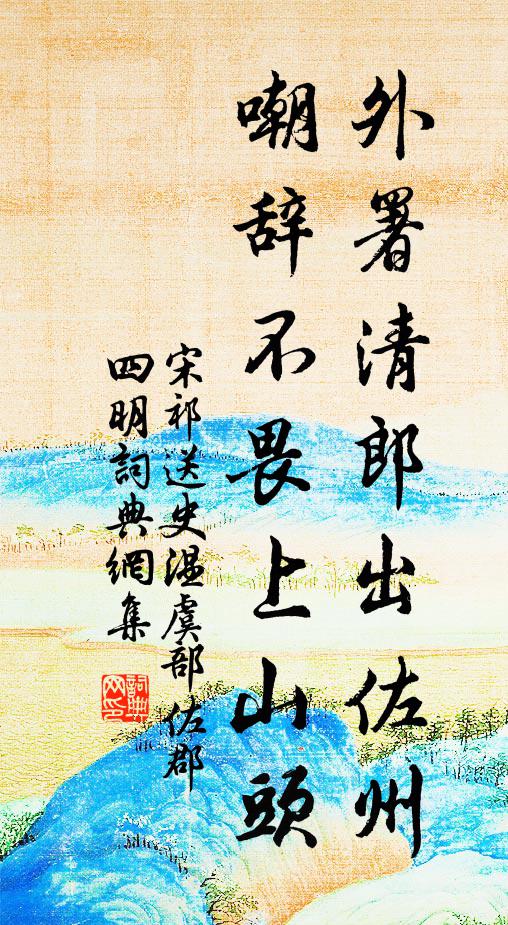 外署清郎出佐州
嘲辞不畏上山頭
宋祁送史温虞部佐郡
四明詞典網集
詞典网印